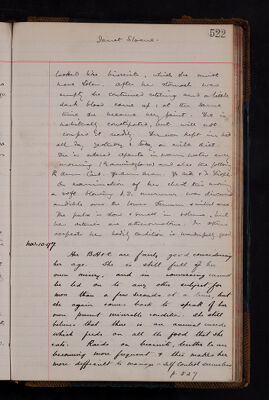 Janet Sloane.
522
looked like biscuits, which she must
have stolen. After her stomach was
empty, she continued retching and a little
dark blood came up; at the same
time she became very faint. She is
habitually constipated, but will not
confess it readily. She was kept in bed
all day yesterday & today on milk diet.
She is ordered aperients in warm water every
morning and also the following
On examination of her chest this morning
a soft blowing murmur was discovered
audible over the lower sternum
The pulse is slow & small in volume, but
her arteries are atheromatous. In other
respects her bodily condition is wonderfully good.
Mar. 10. 97
Her B.H. & C. are fairly good considering
her age. She is still full of her
own misery, and in conversing cannot
be led on to any other subject for
more than a few seconds at a time, but
she again comes back to speak of her
own present miserable condition. She still
believes that there is an animal inside
which feeds on all the food that she
eats. Raids on biscuits, butter &c are
becoming more frequent & this makes her
more difficult to manage - self control
p. 527